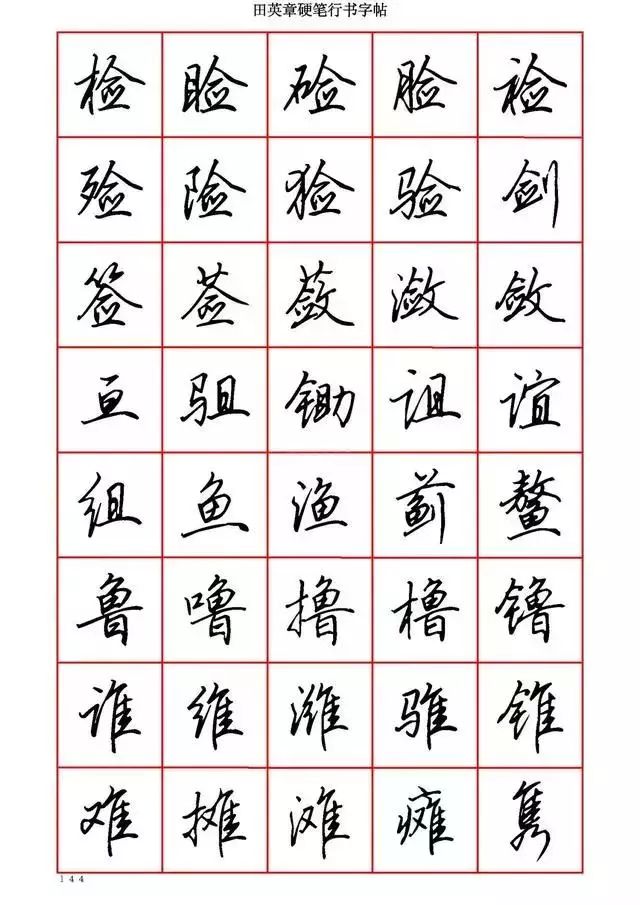 田英章硬笔行书字帖
检 睑 硷 脸 裣
殓 险 猃 验 剑
签 莶 蔹 潋 敛
亘 驵 锄 诅 谊
组 鱼 渔 蓟 鳌
鲁 噜 撸 橹 镥
谁 维 潍 骓 锥
难 摊 滩 瘫 隽
144